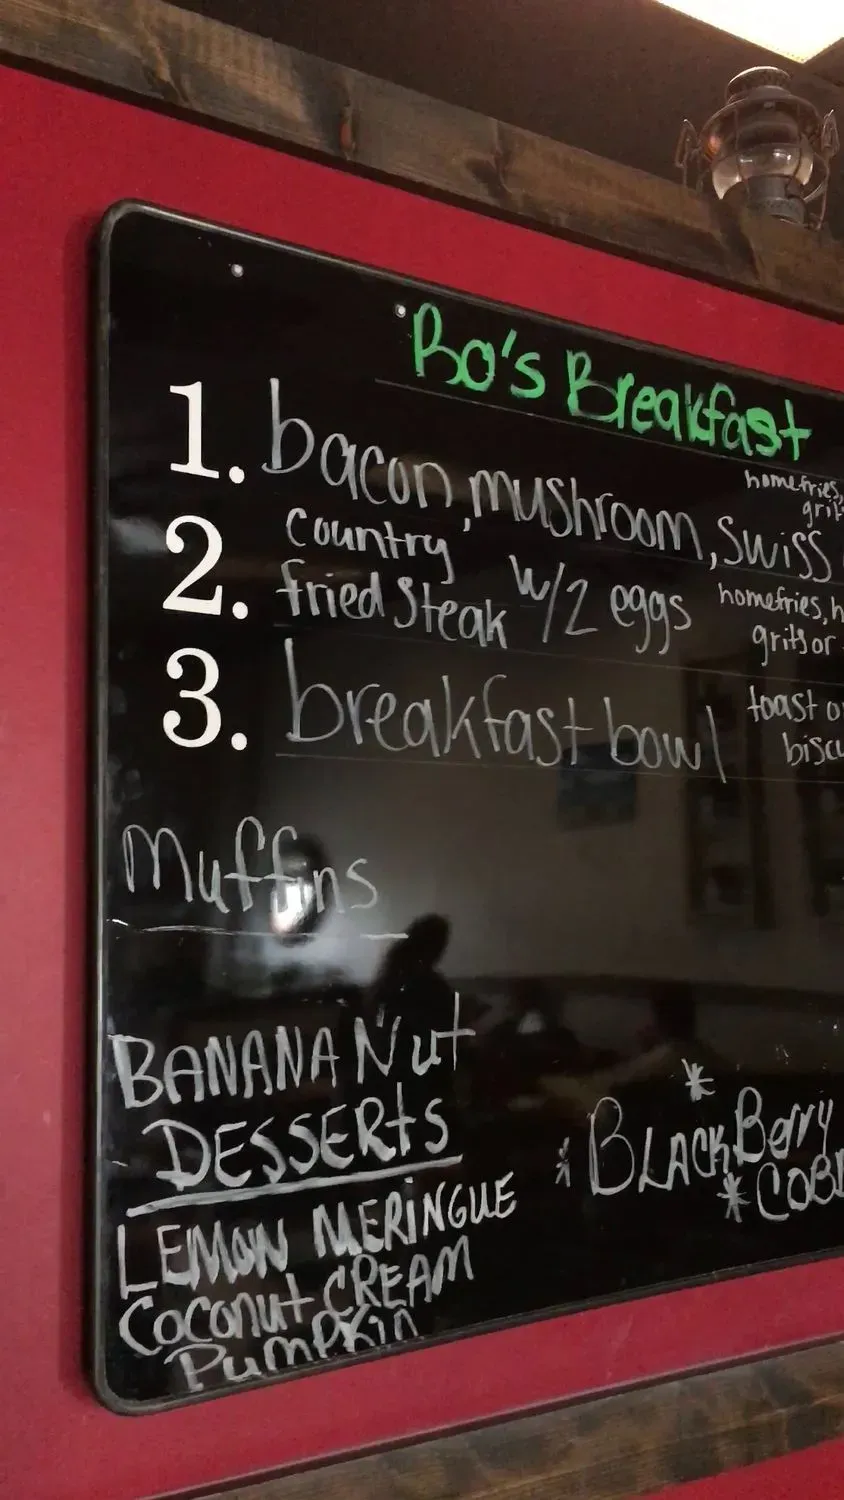 Bo's Breakfast
1. bacon, mushroom, swiss
homefries,
2. country fried steak w/2 eggs
homefries, h
grits or
3. breakfast bowl
toast or
biscu
muffins
BANANA Nut
DESSERts
LEMON MERiNGUE
Coconut CREAM
PumPKin
* BLACKBerry
* COBB